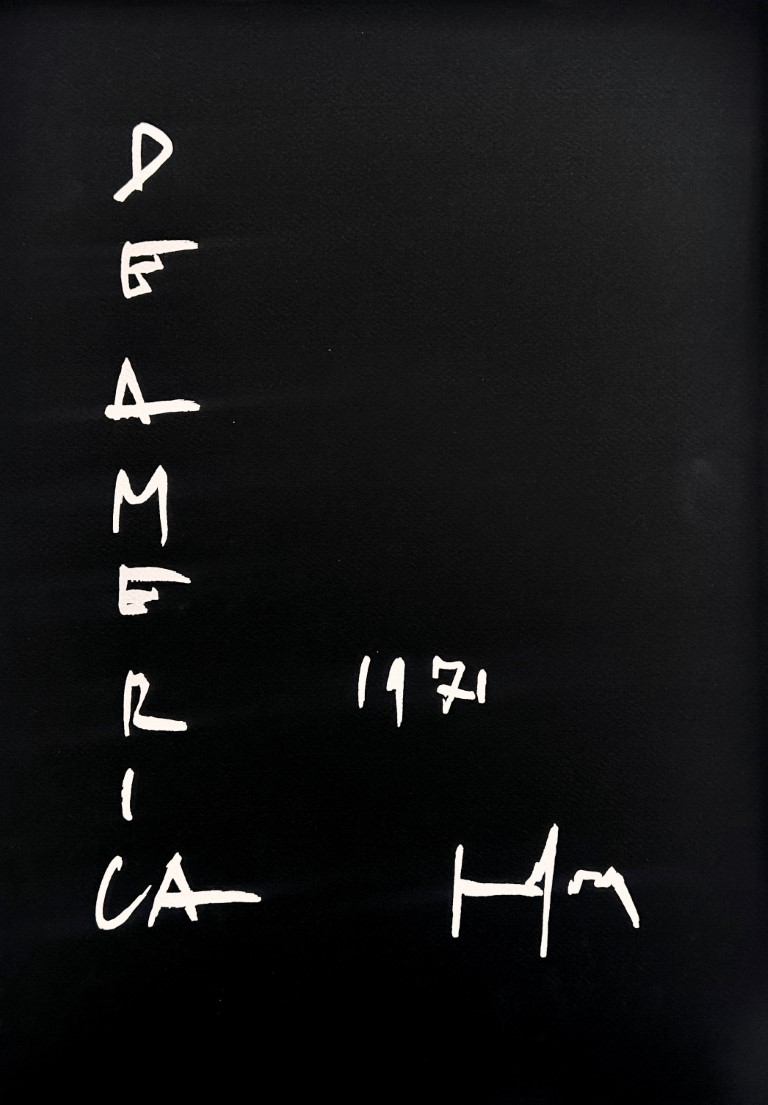 D
E
A
M
E
R
I
CA
1971